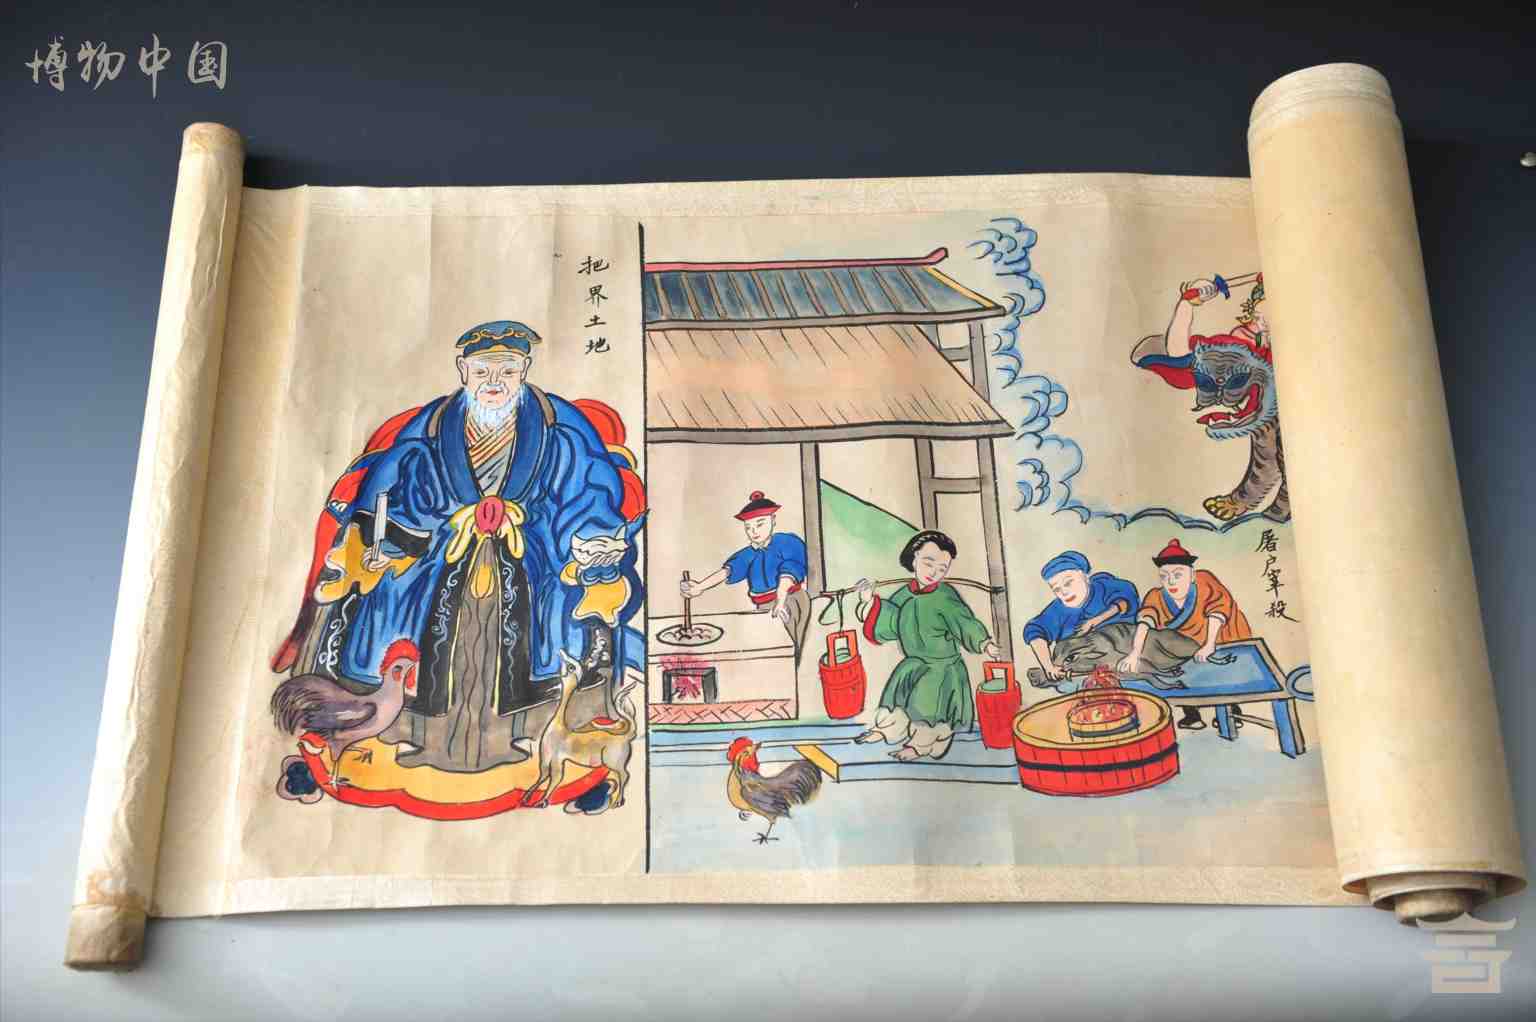 博物中国
把界土地
屠户宰殺